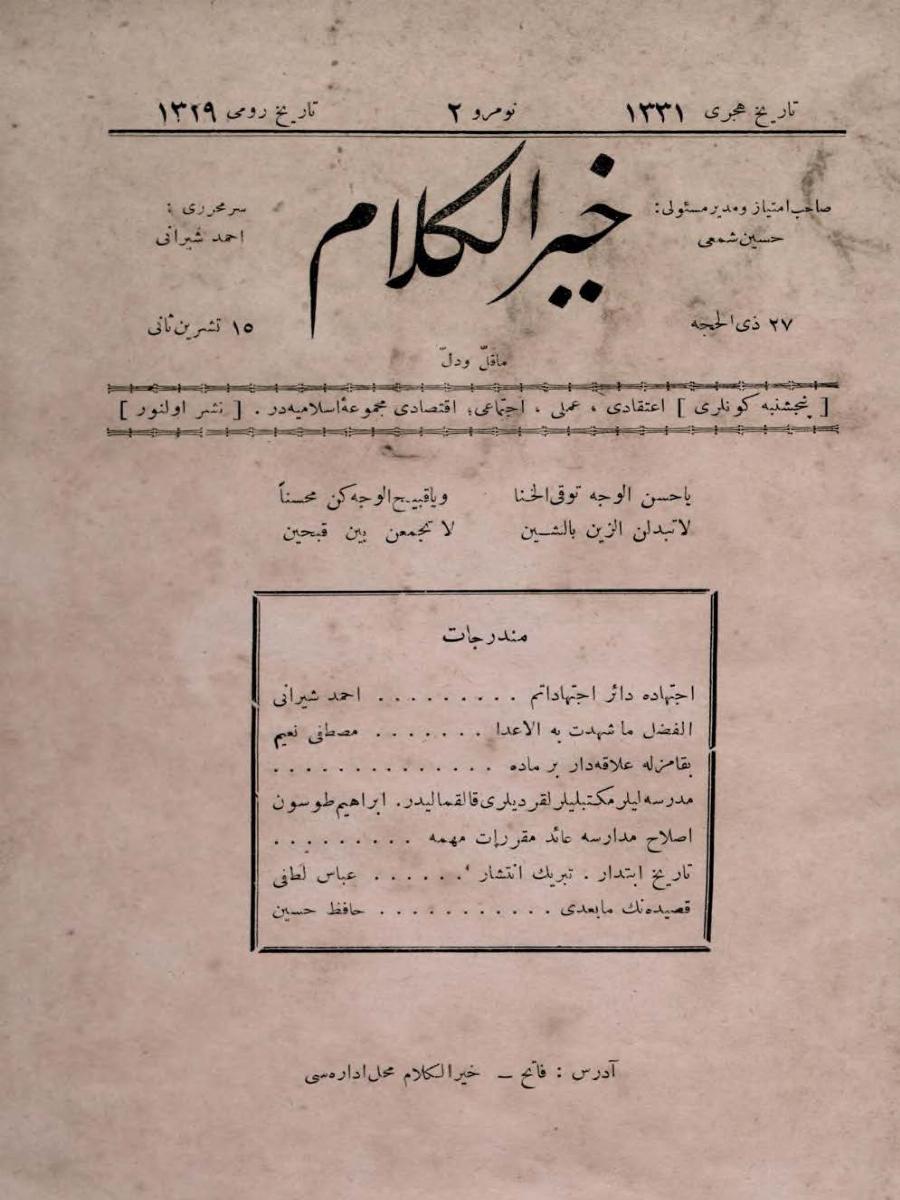 تاریخ هجری ۱۳۳۱ نومرو ۲ تاریخ رومی ۱۳۲۹
خیرالکلام
صاحب امتیاز و مدیر مسئولی:
حسین شمعی
سرمحرری :
احمد شیرانی
۲۷ ذی الحجه
۱۵ تشرین ثانی
ماقلّ ودلّ
[ پنجشنبه کونلری ] اعتقادی ، عملی ، اجتماعی؛ اقتصادی مجموعهٔ اسلامیه‌در . [ نشر اولنور ]
یاحسن الوجه توقی الخنا ویاقبیح الوجه کن محسناً
لاتبدلن الزین بالشین لا تجمعن بین قبحین
مندرجات
اجتهاده دائر اجتهاداتم . . . . . . . . . احمد شیرانی
الفضل ماشهدت به الاعدا . . . . . . . مصطفی نعیم
بقامزله علاقه‌دار بر ماده . . . . . . . . . . . . . .
مدرسه‌لیلر مکتبلیلر لقردیلری قالقمالیدر. ابراهیم طوسون
اصلاح مدارسه عائد مقررات مهمه . . . . . . . . .
تاریخ ابتدار . تبریك انتشار ‘. . . . . . عباس لطفی
قصیده‌نك مابعدی . . . . . . . . . . . حافظ حسین
آدرس : فاتح — خیرالکلام محل اداره‌سی